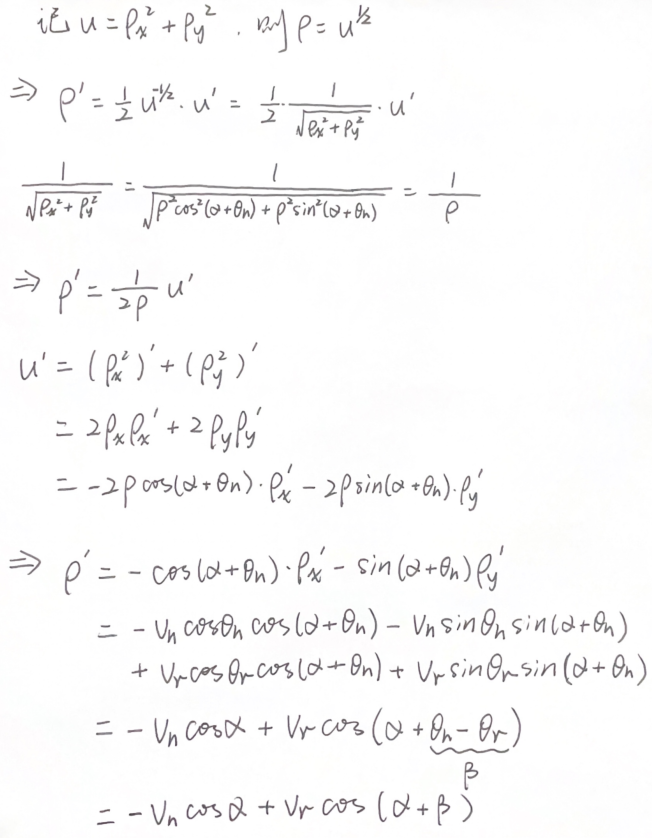 记 u = ρx² + ρy² . 则 ρ = u^½
⇒ ρ' = 1/2 u^(-1/2) · u' = 1/2 · 1/√(ρx² + ρy²) · u'
1/√(ρx² + ρy²) = 1/√(ρ²cos²(α+θn) + ρ²sin²(α+θn)) = 1/ρ
⇒ ρ' = 1/(2ρ) u'
u' = (ρx²)' + (ρy²)'
= 2ρxρx' + 2ρyρy'
= -2ρcos(α+θn)·ρx' - 2ρsin(α+θn)·ρy'
⇒ ρ' = -cos(α+θn)·ρx' - sin(α+θn)ρy'
= -Vn cosθn cos(α+θn) - Vn sinθn sin(α+θn)
+ Vr cosθr cos(α+θn) + Vr sinθr sin(α+θn)
= -Vn cosα + Vr cos(α+θn-θr)
β
= -Vn cosα + Vr cos(α+β)